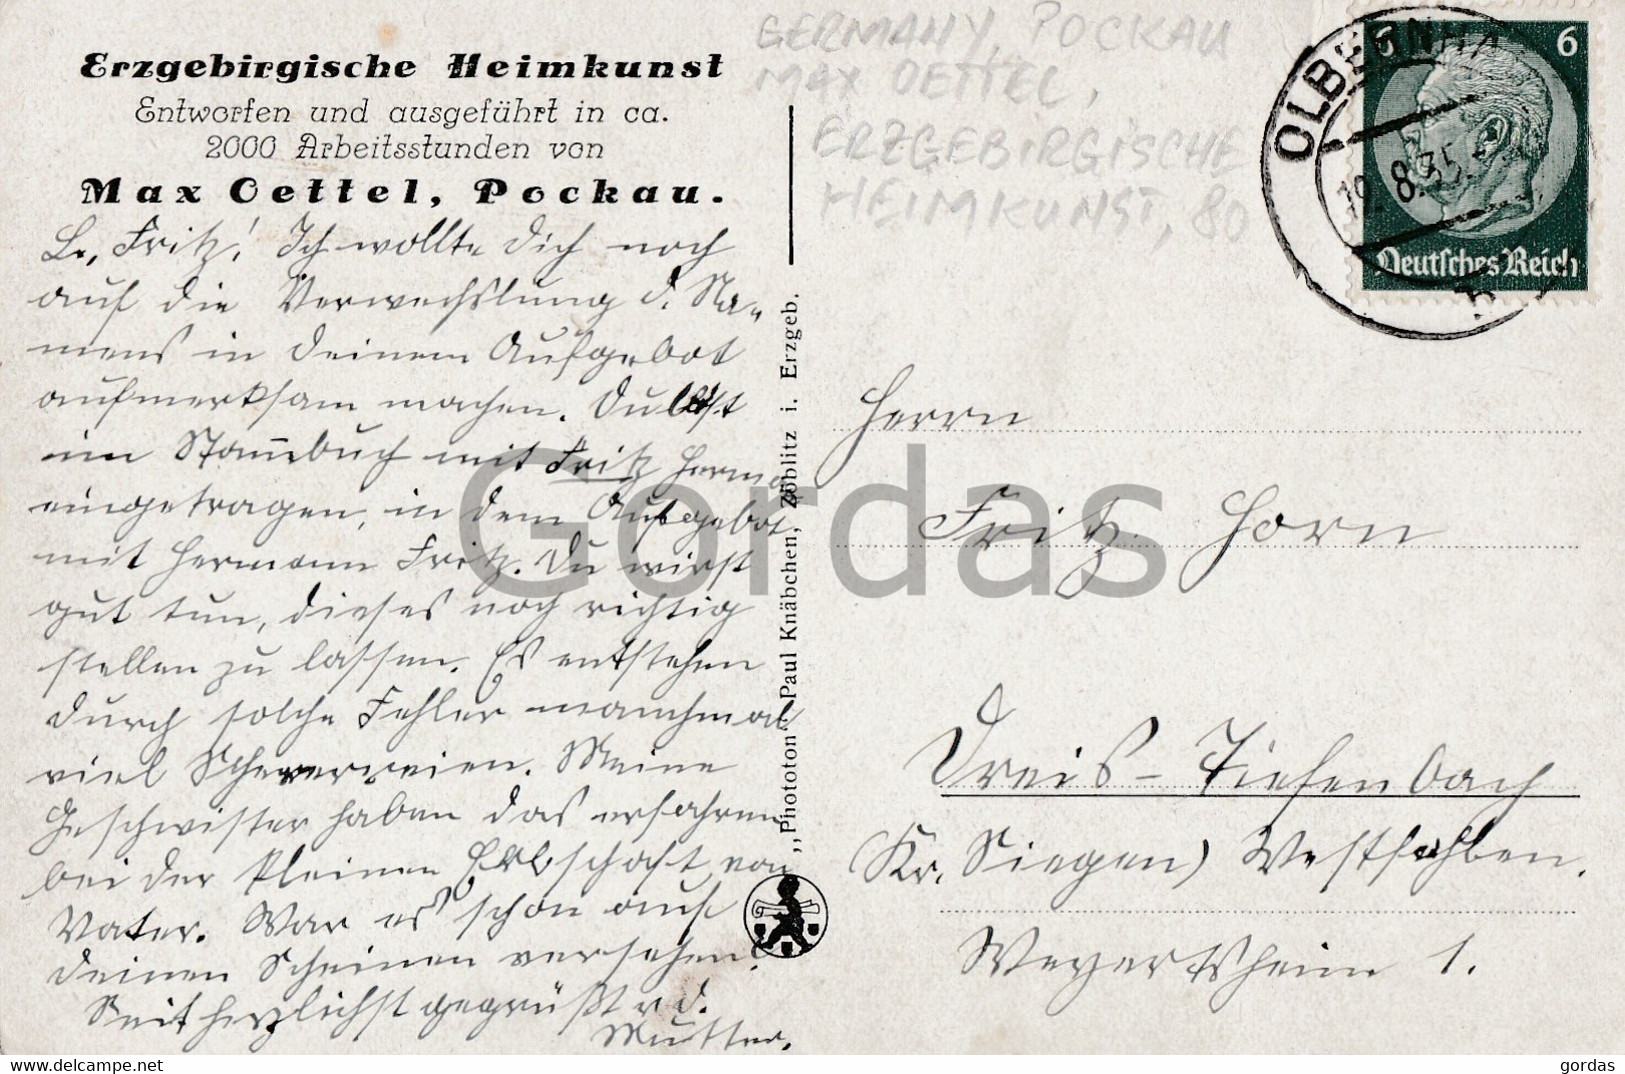 Erzgebirgische Heimkunst
Entworfen und ausgeführt in ca.
2000 Arbeitsstunden von
Max Oettel, Pockau.
Lr. Fritz! Ich wollte Dich noch
auf die Verwechslung d. Na-
mens in Deinem Aufgebot
aufmerksam machen. Du bist
im Stam̄buch mit Fritz Herma
eingetragen, in dem Aufgebot
mit Hermann Fritz. Du wirst
gut tun, dieses noch richtig
stellen zu lassen. Es entstehen
durch solche Fehler manchmal
viel Scherereien. Meine
Geschwister haben das erfahren
bei der kleinen Erbschaft von
Vater. War es schon auf
deinen Scheinen versehen?
Seit herzlichst gegrüßt v d.
Mutter.
"Phototon" Paul Knäbchen, Zöblitz i. Erzgeb.
GERMANY, POCKAU
MAX OETTEL,
ERZGEBIRGISCHE
HEIMKUNST, 80
OLBERNHA
10.8.35.
6 6
Deutsches Reich
Herrn
Fritz Horn
Dreis-Tiefenbach
(Kr. Siegen) Westfahlen.
Weyertsheim 1.
Gordas
gordas